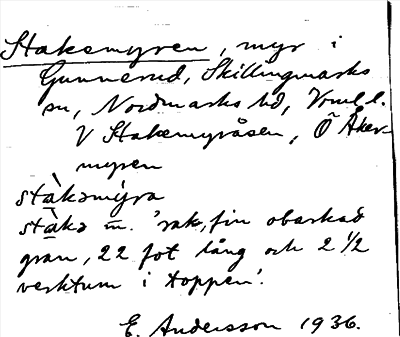 Stakemyren, myr i
Gunnerud, Skillingmarks
sn, Nordmarks hd, Vrml l.
V Stakemyråsen, Ö Åker-
myren
stàkəmýra
stàkə m. 'rak, fin obarkad
gran, 22 fot lång och 2 1/2
verktum i toppen'.
E. Andersson 1936.